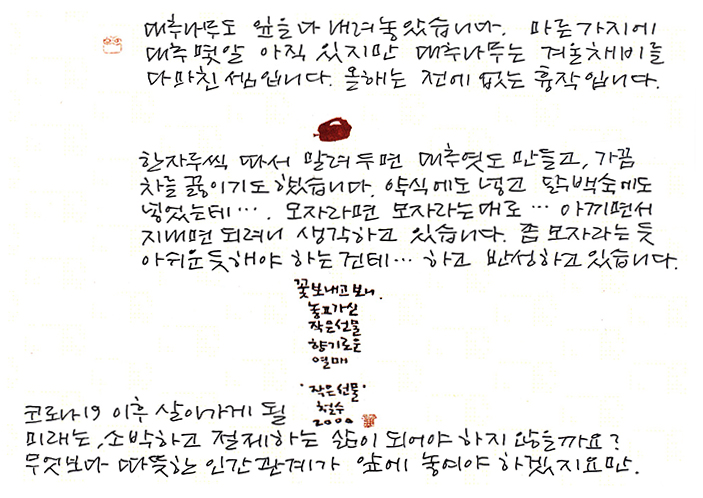 대추나무도 잎을 다 내려놓았습니다. 마른 가지에
대추 몇알 아직 있지만 대추나무는 겨울채비를
다 마친 셈입니다. 올해는 전에 없는 흉작입니다.
한자루씩 따서 말려두면 대추엿도 만들고, 가끔
차를 끓이기도 했습니다. 약식에도 넣고 닭백숙에도
넣었는데…. 모자라면 모자라는대로… 아끼면서
지내면 되려니 생각하고 있습니다. 좀 모자라는 듯
아쉬운 듯해야 하는건데… 하고 반성하고 있습니다.
꽃 보내고 보니,
놓고 가신
작은 선물
향기로운
열매
'작은 선물'
철수
2000
코로나19 이후 살아가게 될
미래는, 소박하고 절제하는 삶이 되어야 하지 않을까요?
무엇보다 따뜻한 인간관계가 앞에 놓여야 하겠지요만.